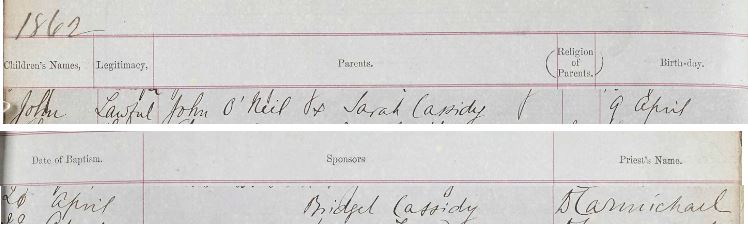 1862
Children's Names, Legitimacy, Parents. (Religion of Parents.) Birth-day.
John Lawful John O'Neil & Sarah Cassidy 9 April
Date of Baptism. Sponsors Priest's Name.
20 April Bridget Cassidy D Carmichael